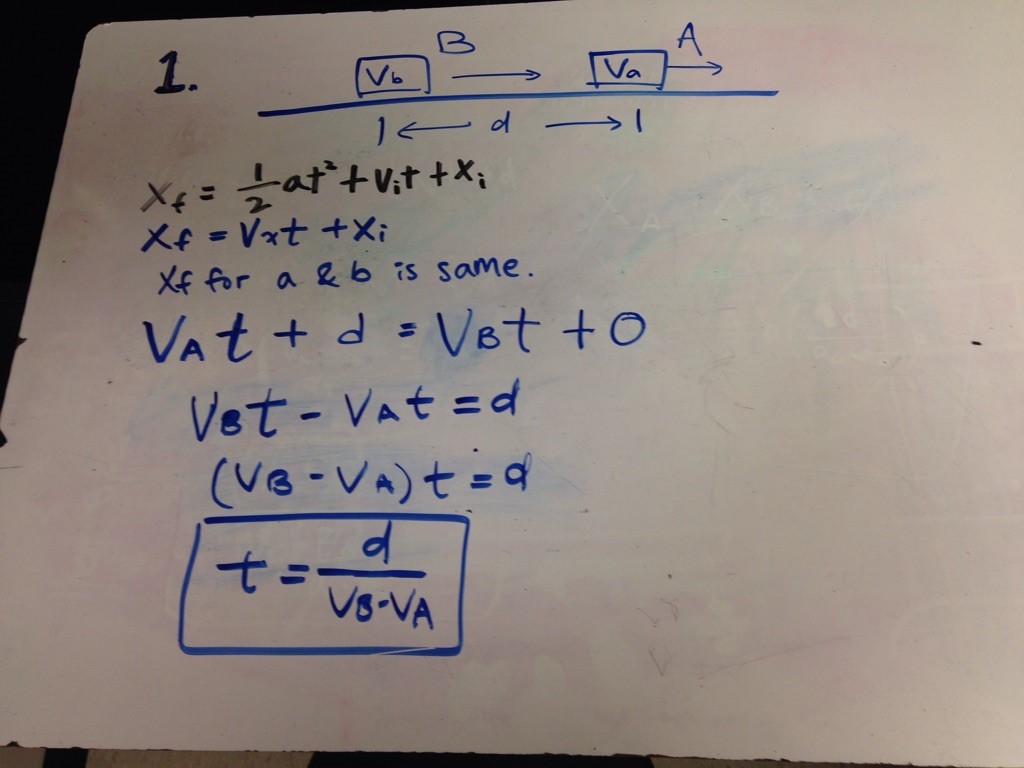 1.
B A
Vb Va
d
Xf = 1/2 at² + Vit + Xi
Xf = Vxt + Xi
Xf for a & b is same.
VAt + d = VBt + 0
VBt - VAt = d
(VB - VA)t = d
t = d / VB-VA